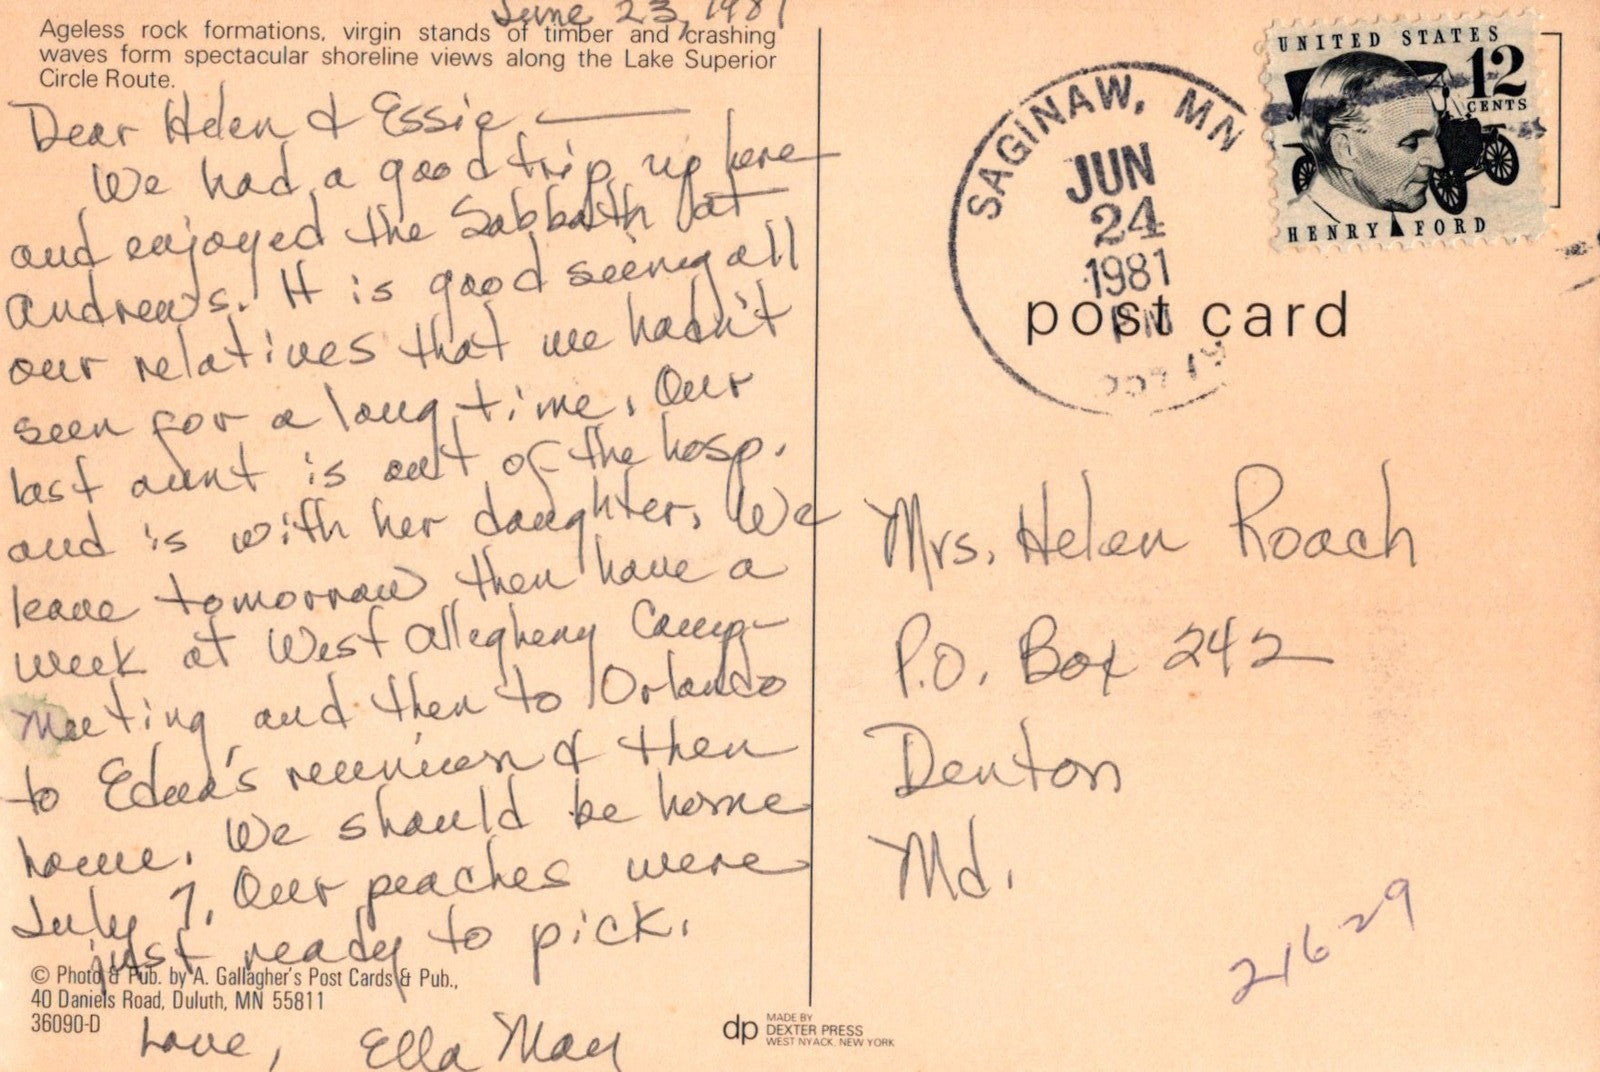 June 23, 1981
Ageless rock formations, virgin stands of timber and crashing
waves form spectacular shoreline views along the Lake Superior
Circle Route.
Dear Helen & Essie —
We had a good trip up here
and enjoyed the Sabbath at
Andrews. It is good seeing all
our relatives that we hadn't
seen for a long time. Our
last aunt is out of the hosp.
and is with her daughter. We
leave tomorrow then have a
week at West Allegheny Camp-
Meeting and then to Orlando
to Edna's reunion & then
home. We should be home
July 7. Our peaches were
just ready to pick.
© Photo & Pub. by A. Gallagher's Post Cards & Pub.,
40 Daniels Road, Duluth, MN 55811
36090-D
Love, Ella May
dp MADE BY
DEXTER PRESS
WEST NYACK, NEW YORK
UNITED STATES
12
CENTS
HENRY FORD
SAGINAW, MN
JUN
24
1981
post card
Mrs. Helen Roach
P.O. Box 242
Denton
Md.
21629